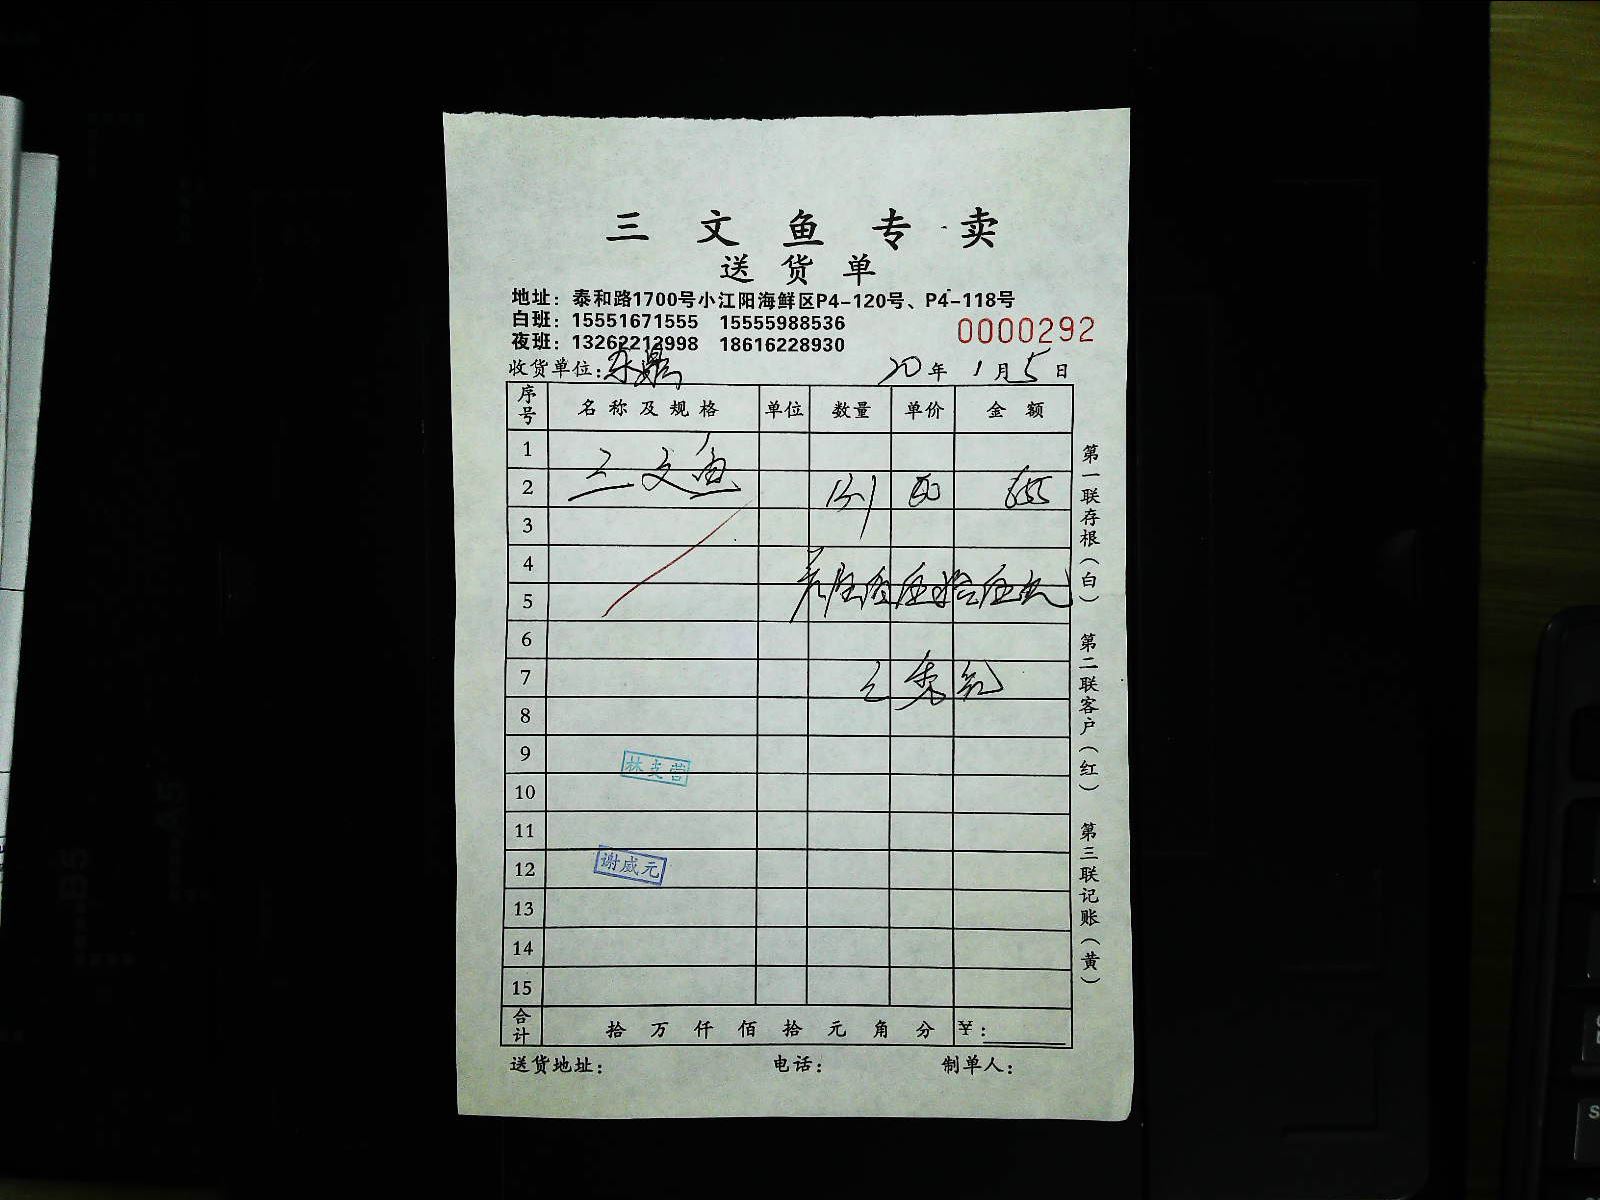 三文鱼专卖
送货单
地址：泰和路1700号小江阳海鲜区P4-120号、P4-118号
白班：15551671555 15555988536
夜班：13262212998 18616228930
0000292
收货单位：东鼎 20年1月5日
序号 名称及规格 单位 数量 单价 金额
1
2 三文鱼 13.1 50 655
3
4
5
6
7
8
9 林支营
10
11
12 谢威元
13
14
15
合计 拾万仟佰拾元角分 ¥：
送货地址： 电话： 制单人：
第一联存根（白） 第二联客户（红） 第三联记账（黄）